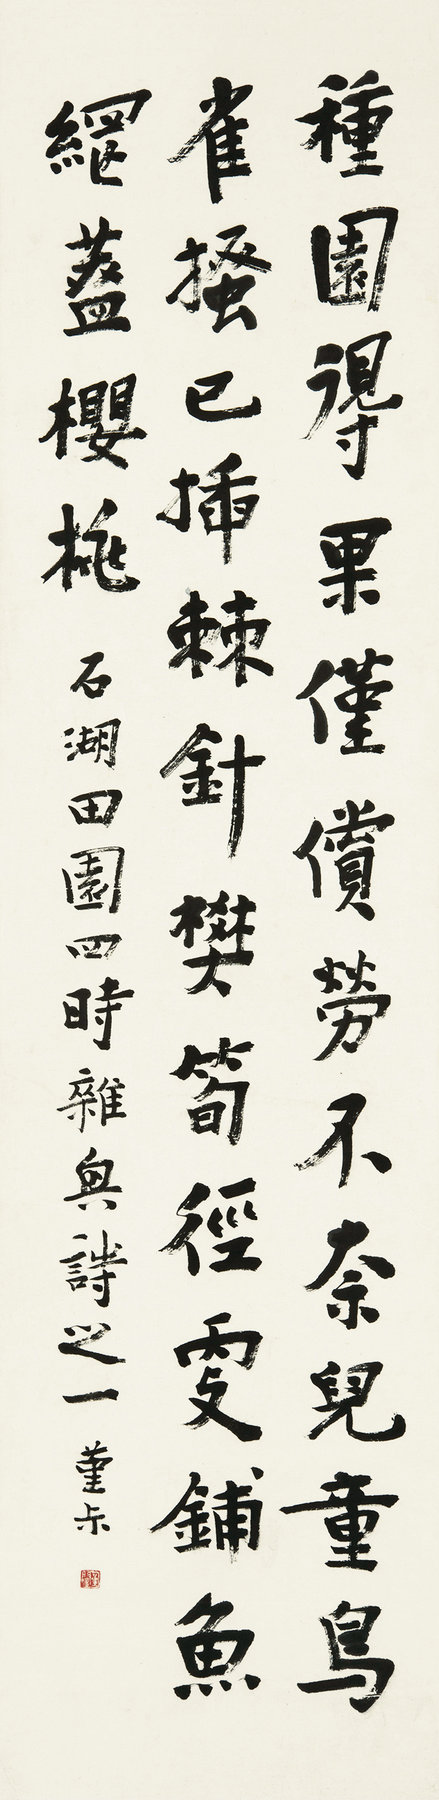 種園得果僅償勞不奈兒童鳥
雀搔已插棘針樊筍徑更鋪魚
網蓋櫻桃 石湖田園四時雜興詩之一